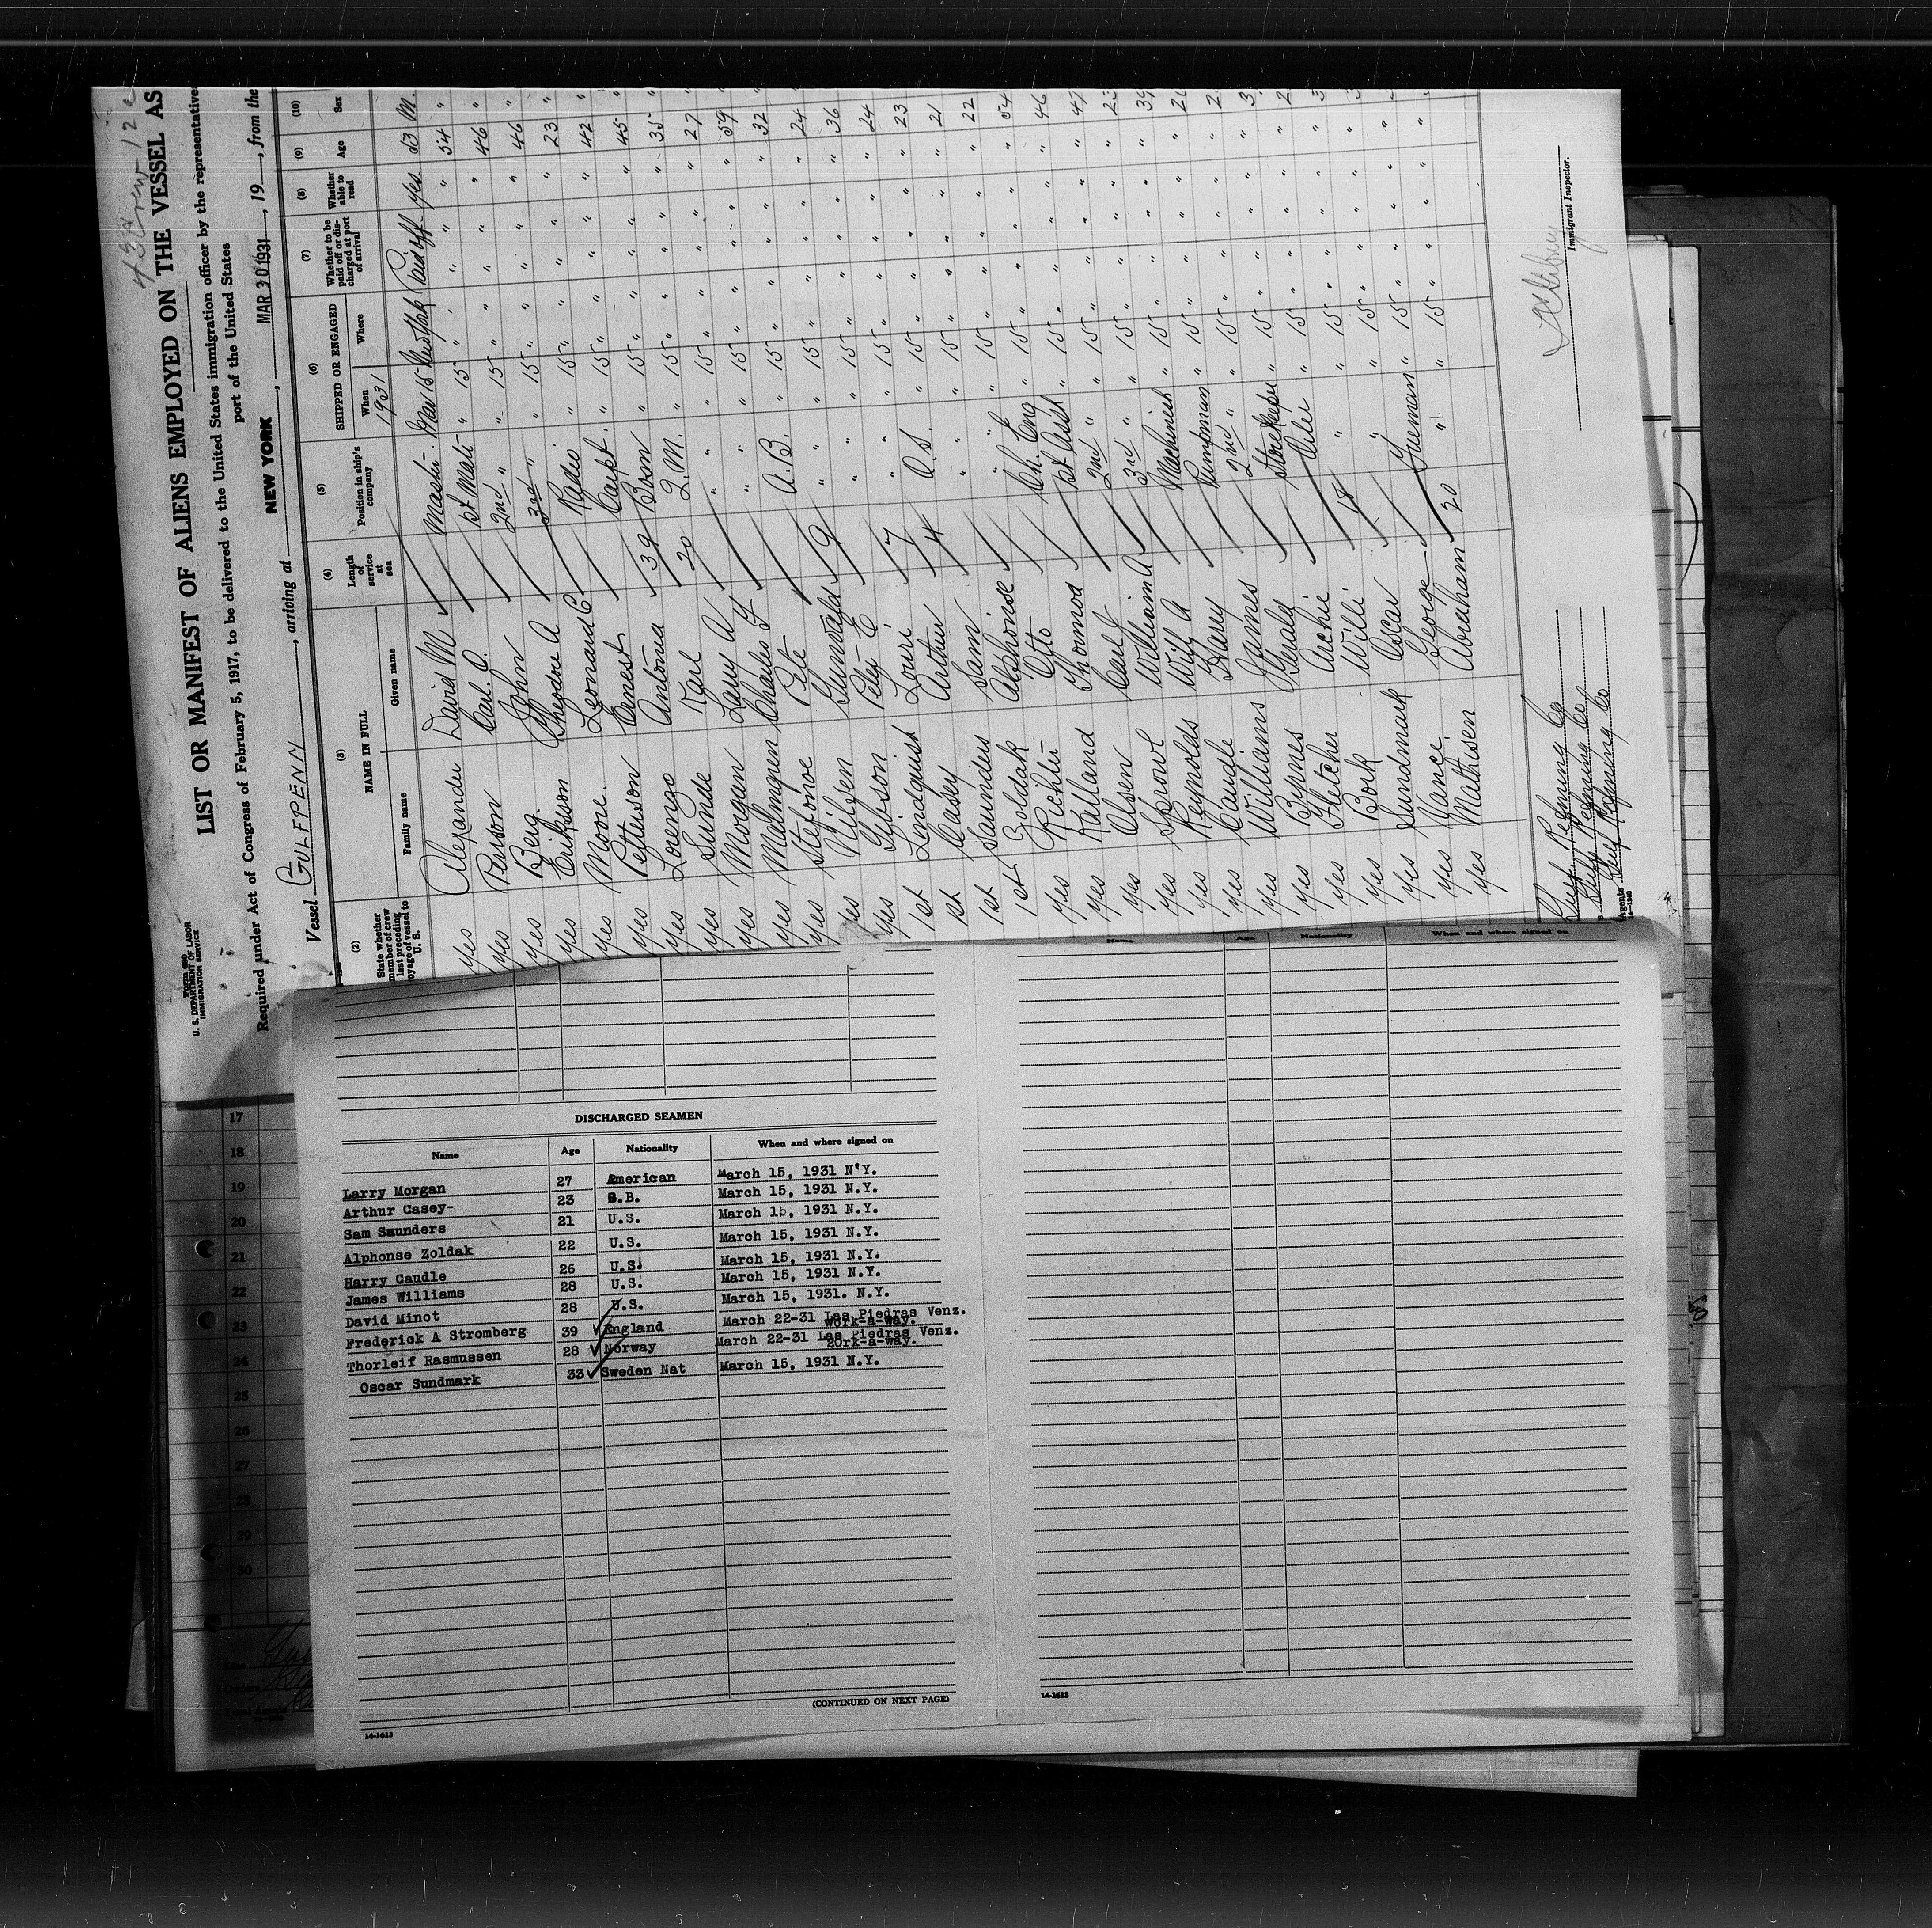 43 Crew 12
Form 680
U. S. DEPARTMENT OF LABOR
IMMIGRATION SERVICE
LIST OR MANIFEST OF ALIENS EMPLOYED ON THE VESSEL AS
Required under Act of Congress of February 5, 1917, to be delivered to the United States immigration officer by the representative
port of the United States
Vessel GULFPENN, arriving at NEW YORK, MAR 30 1931, 19, from the
(2) (3) (4) (5) (6) (7) (8) (9) (10)
State whether member of crew last preceding voyage of vessel to U. S.
NAME IN FULL
Family name Given name
Length of service at sea
Position in ship's company
SHIPPED OR ENGAGED
When Where
Whether to be paid off or discharged at port of arrival
Whether able to read
Age
Sex
1931
Yes Alexander David M Master Mar 15 New York Paid off yes 53 M.
Yes Person Carl O. 1st Mate " 15 " " " 54 "
Yes Berg John 2nd " " 15 " " " 46 "
Yes Erikson Theodore A 3rd " " 15 " " " 46 "
Yes Moore Leonard C Radio " 15 " " " 23 "
Yes Petterson Ernest Carpt. " 15 " " " 42 "
Yes Lorenzo Antonia 39 Bosn " 15 " " " 45 "
Yes Sunde Karl 20 Q.M. " 15 " " " 35 "
Yes Morgan Larry A " " 15 " " " 27 "
Yes Malmgren Charles F " " 15 " " " 59 "
Yes Stefonoe Pete A.B. " 15 " " " 32 "
Yes Nilsen Gunvald 9 " " 15 " " " 24 "
Yes Gibson Pely E " " 15 " " " 36 "
1st Lindquish Louri 7 " " 15 " " " 24 "
1st Casey Arthur 4 O.S. " 15 " " " 23 "
1st Saunders Sam " " 15 " " " 21 "
1st Zoldak Alphonse " " 15 " " " 22 "
Yes Richter Otto Ch. Eng " 15 " " " 54 "
Yes Kalland Thomas 1st Asst " 15 " " " 46 "
Yes Olsen Carl J 2nd " " 15 " " " 47 "
Yes Sproul William A 3rd " " 15 " " "
Yes Reynolds Will A Machinist " 15 " " "
Yes Caudle Harry Pumpman " 15 " " "
Yes Williams James 2nd " " 15 " " "
Yes Byrnes Gerald Storekeeper " 15 " " "
Yes Fletcher Archie Oiler " 15 " " "
Yes Bork Willi 18 " " 15 " " "
Yes Sundmark Oscar " " 15 " " "
Yes Vance George Fireman " 15 " " "
Yes Mathisen Abraham 20 " " 15 " " "
Gulf Refining Co
Gulf Refining Co
Agents Gulf Refining Co
14-1240
Immigrant Inspector.
17
18
19
20
21
22
23
24
25
26
27
28
29
30
DISCHARGED SEAMEN
Name Age Nationality When and where signed on
Larry Morgan 27 American March 15, 1931 N'Y.
Arthur Casey- 23 G.B. March 15, 1931 N.Y.
Sam Saunders 21 U.S. March 15, 1931 N.Y.
Alphonse Zoldak 22 U.S. March 15, 1931 N.Y.
Harry Caudle 26 U.S. March 15, 1931 N.Y.
James Williams 28 U.S. March 15, 1931 N.Y.
David Minot 28 U.S. March 15, 1931. N.Y.
Frederick A Stromberg 39 England March 22-31 Las Piedras Venz.
work-a-way.
Thorleif Rasmussen 28 Norway March 22-31 Las Piedras Venz.
2ork-a-way.
Oscar Sundmark 33 Sweden Nat March 15, 1931 N.Y.
(CONTINUED ON NEXT PAGE)
14-1613
Name Age Nationality When and where signed on
14-1613